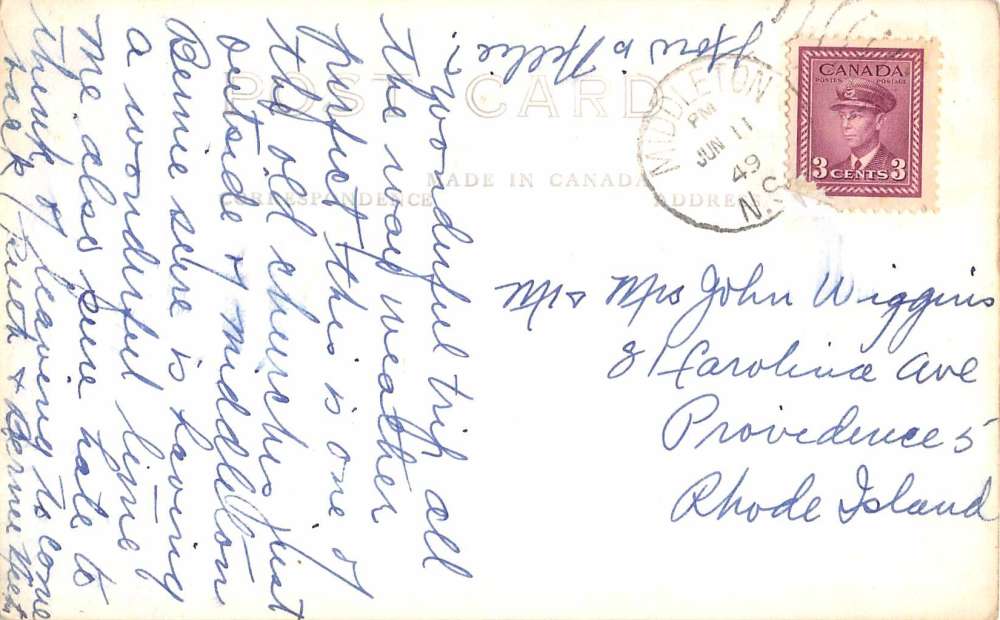 POST CARD
MADE IN CANADA
CORRESPONDENCE
ADDRESS
CANADA
POSTES POSTAGE
3 CENTS 3
MIDDLETON
PM
JUN 11
49
N.S.
Mr & Mrs John Wiggins
81 Carolina Ave
Providence 5
Rhode Island
How's Nellie?
Wonderful trip all
the way weather
perfect this is one of
the old churches just
outside of Middleton
Bernie sure is having
a wonderful time
me also sure hate to
think of leaving to come
back / Ruth &